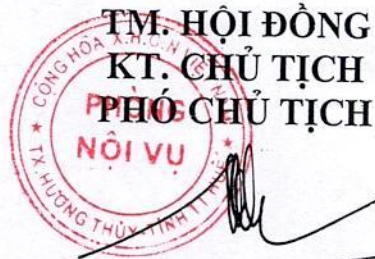 TM. HỘI ĐỒNG
KT. CHỦ TỊCH
PHÓ CHỦ TỊCH
CỘNG HÒA X.H.C.N VIỆT NAM
PHÒNG
NỘI VỤ
TX. HƯƠNG THỦY-TỈNH TT HUẾ